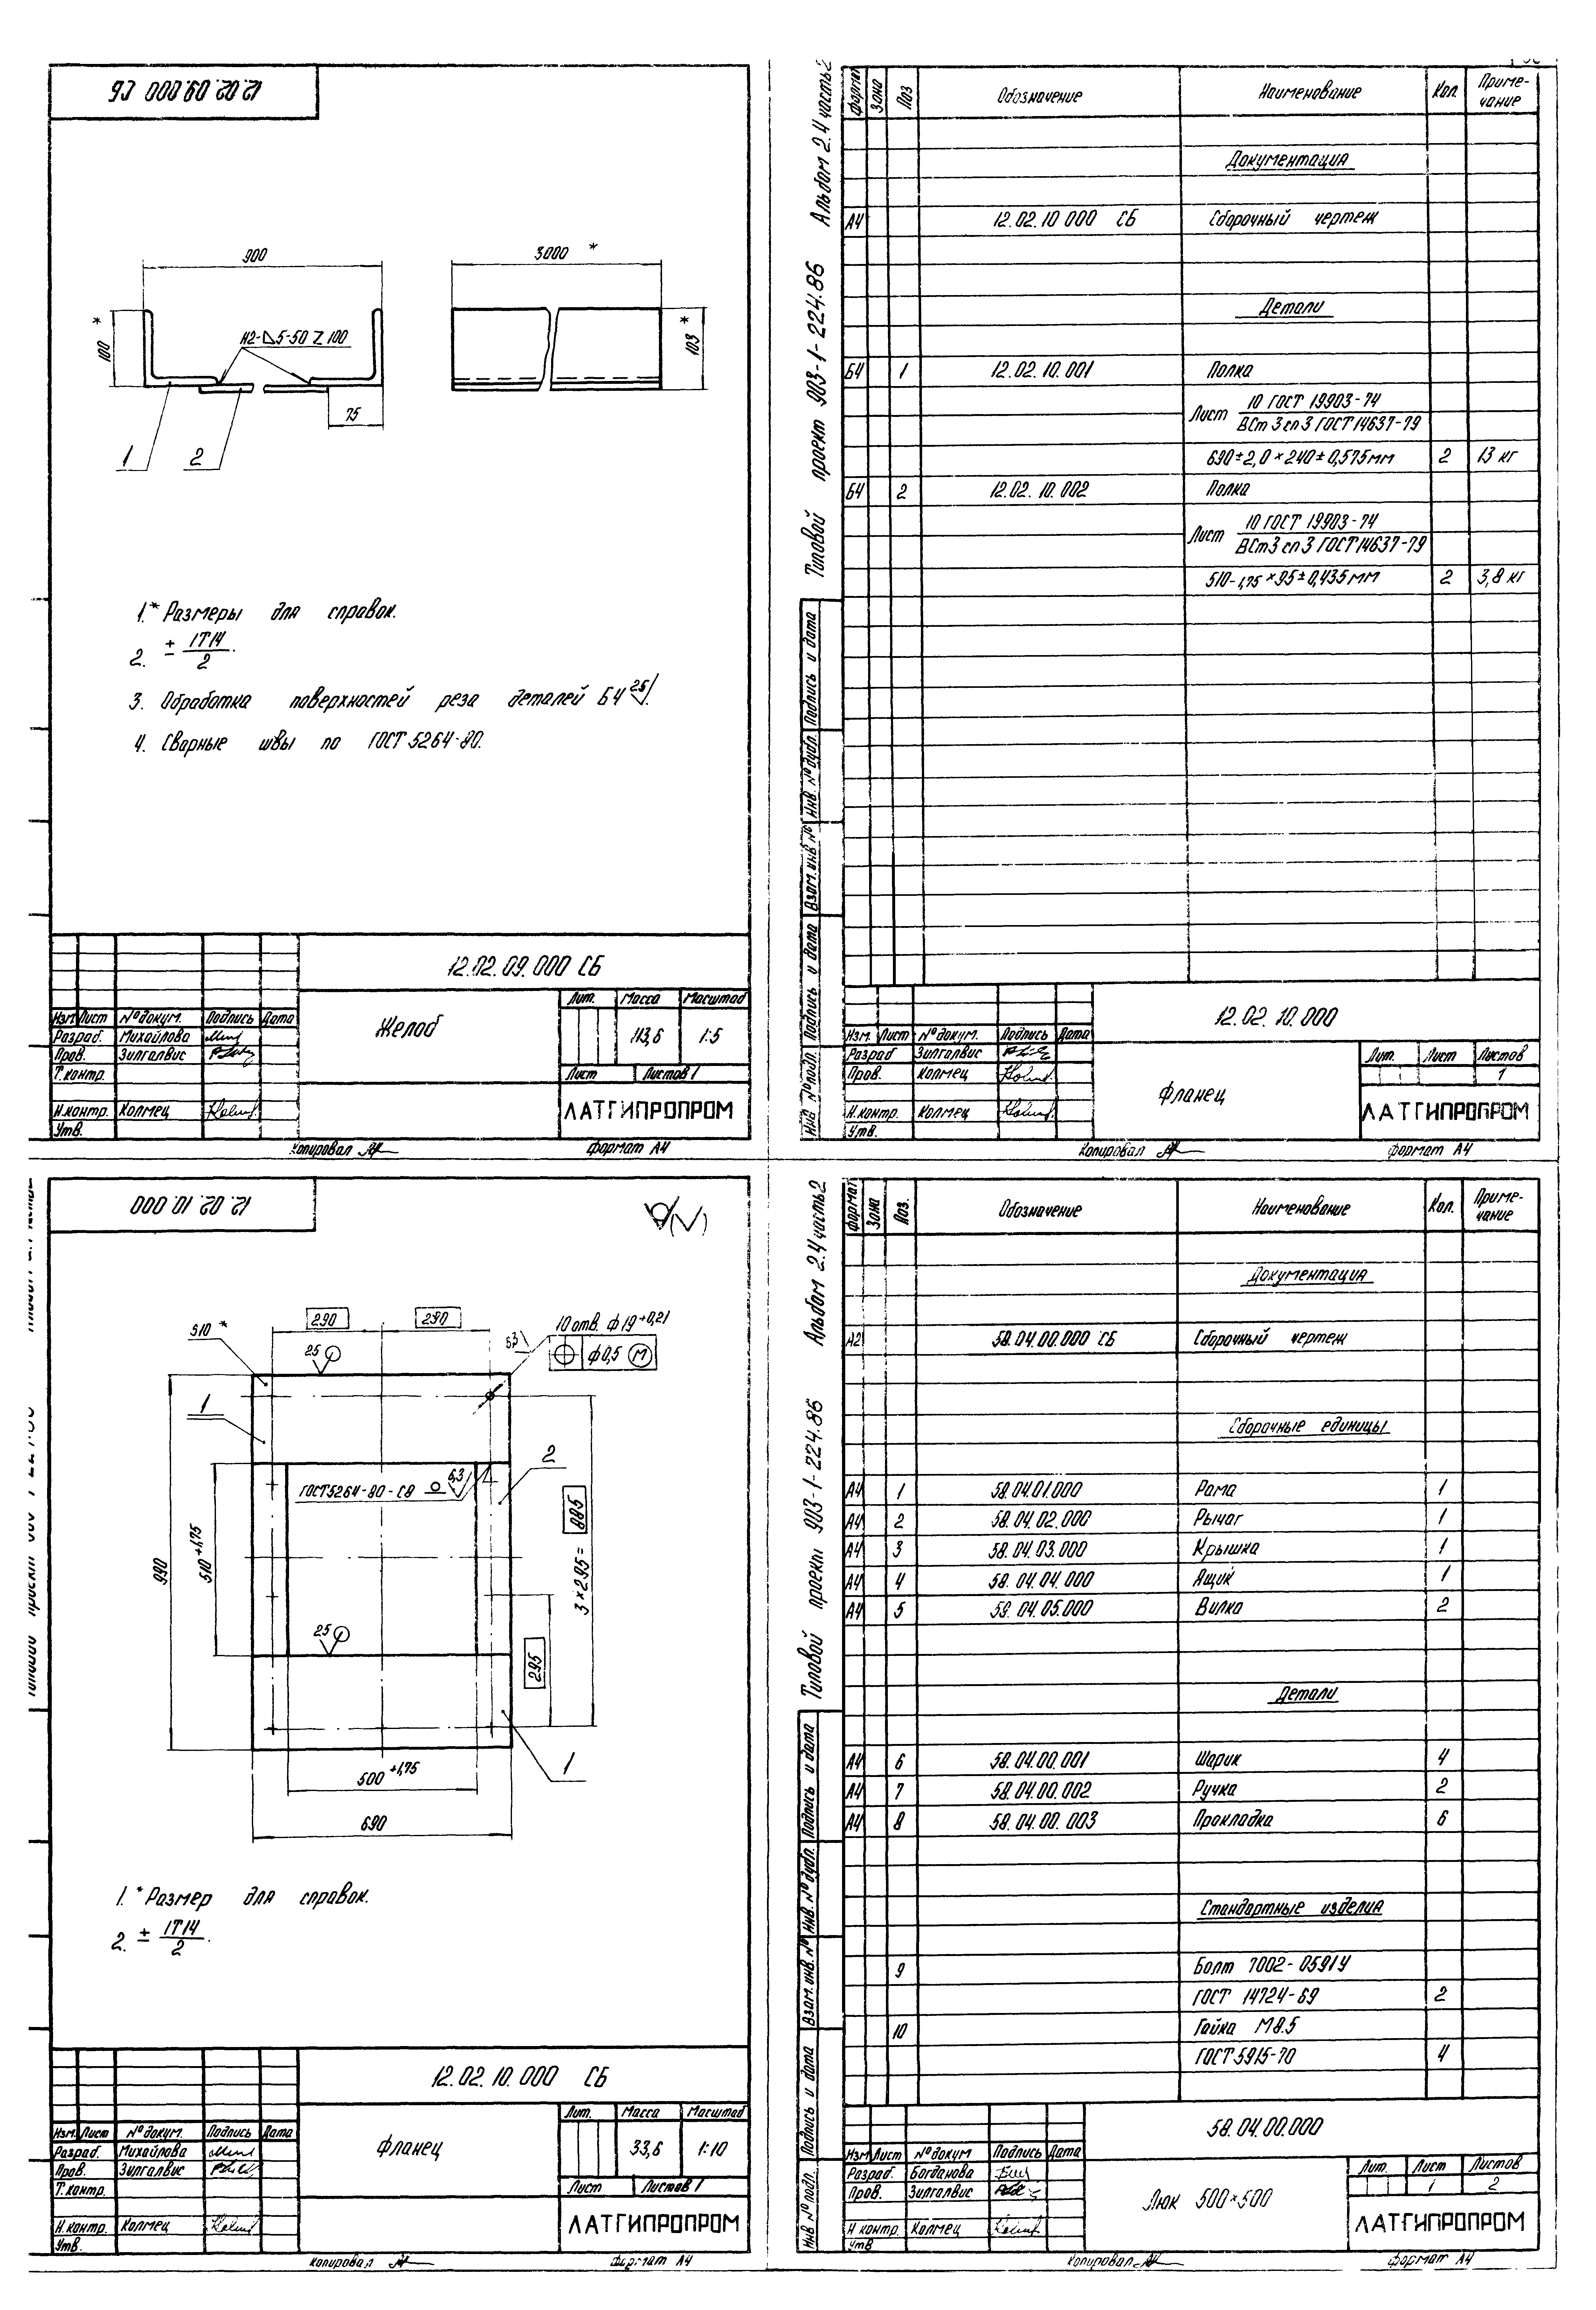 12.02.09.000 СБ
900
3000 *
100 *
Н2-◺5-50 Z 100
103 *
75
1
2
1.* Размеры для справок.
2. ± IT14/2.
3. Обработка поверхностей реза деталей Б4 25/.
4. Сварные швы по ГОСТ 5264-80.
12.02.09.000 СБ
Желоб
Лит. Масса Масштаб
113,6 1:5
Лист Листов 1
ЛАТГИПРОПРОМ
Изм. Лист № докум. Подпись Дата
Разраб. Михайлова
Пров. Зилгалвис
Т.контр.
Н.контр. Колмец
Утв.
Копировал
Формат А4
Альбом 2.4 часть 2
Типовой проект 903-1-224.86
Формат Зона Поз Обозначение Наименование Кол Примечание
Документация
А4 12.02.10.000 СБ Сборочный чертеж
Детали
Б4 1 12.02.10.001 Полка
Лист 10 ГОСТ 19903-74
ВСт 3 сп 3 ГОСТ 14637-79
690±2,0×240±0,575мм 2 13 кг
Б4 2 12.02.10.002 Полка
Лист 10 ГОСТ 19903-74
ВСт3 сп 3 ГОСТ 14637-79
510-1,75×95±0,435мм 2 3,8 кг
Инв. № подл. Подпись и дата Взам. инв. № Инв. № дубл. Подпись и дата
12.02.10.000
Изм. Лист № докум. Подпись Дата
Разраб Зилгалвис
Пров. Колмец
Н.контр. Колмец
Утв.
Фланец
Лит. Лист Листов
1
ЛАТГИПРОПРОМ
Копировал
Формат А4
12.02.10.000
510 *
290
290
10 отв. ϕ19 +0,21
ϕ0,5 М
25
6,3
1
2
ГОСТ 5264-80-С8
6,3
990
510 +1,75
3×295= 885
295
25
1
500 +1,75
690
1.* Размер для справок.
2. ± IT14/2.
12.02.10.000 СБ
Фланец
Лит. Масса Масштаб
33,6 1:10
Лист Листов 1
ЛАТГИПРОПРОМ
Изм. Лист № докум. Подпись Дата
Разраб. Михайлова
Пров. Зилгалвис
Т.контр.
Н.контр. Колмец
Утв.
Копировал
Формат А4
Альбом 2.4 часть 2
Типовой проект 903-1-224.86
Формат Зона Поз. Обозначение Наименование Кол. Примечание
Документация
А2 58.04.00.000 СБ Сборочный чертеж
Сборочные единицы
А4 1 58.04.01.000 Рама 1
А4 2 58.04.02.000 Рычаг 1
А4 3 58.04.03.000 Крышка 1
А4 4 58.04.04.000 Ящик 1
А4 5 58.04.05.000 Вилка 2
Детали
А4 6 58.04.00.001 Шарик 4
А4 7 58.04.00.002 Ручка 2
А4 8 58.04.00.003 Прокладка 6
Стандартные изделия
9 Болт 7002-0591У
ГОСТ 14724-69 2
10 Гайка М8.5
ГОСТ 5915-70 4
Инв № подл. Подпись и дата Взам. инв. № Инв. № дубл. Подпись и дата
58.04.00.000
Изм Лист № докум Подпись Дата
Разраб. Богданова
Пров. Зилгалвис
Н контр. Колмец
Утв
Люк 500×500
Лит. Лист Листов
1 2
ЛАТГИПРОПРОМ
Копировал
Формат А4